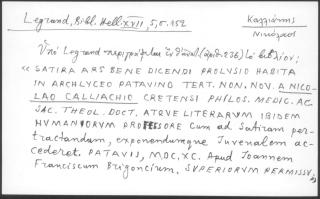 Legrand, Bibl. Hell. XVII, 5, σ. 152
Καλλιάκης
Νικόλαος
Ὑπό Legrand περιγράφεται (ἀριθ. 836) τό βιβλίον:
« SATIRA ARS BENE DICENDI PROLVSIO HABITA
IN ARCHLYCEO PATAVINO TERT. NON. NOV. A NICO-
LAO CALLIACHIO CRETENSI PHILOS. MEDIC. AC
SAC. THEOL. DOCT. ATQVE LITERARVM IBIDEM
HUMANIORVM PROFESSORE Cum ad Satiram per-
tractandam, exponendumque Juvenalem ac-
cederet. PATAVIS, MDC.XC. Apud Ioannem
Franciscum Brigoncium. SVPERIORVM PERMISSV »